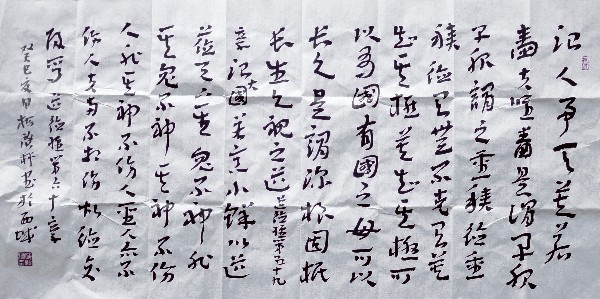 治人事天莫若
嗇夫唯嗇是謂早服
早服謂之重積德重
積德則無不克則莫
知其極莫知其極可
以有國有國之母可以
長久是謂深根固柢
長生久視之道 道德經第五十九
章治大國若烹小鮮以道
蒞天下其鬼不神非
其鬼不神其神不傷
人非其神不傷人聖人亦不
傷人夫兩不相傷故德交
歸焉道德經第六十章
癸巳夏月 書於西城